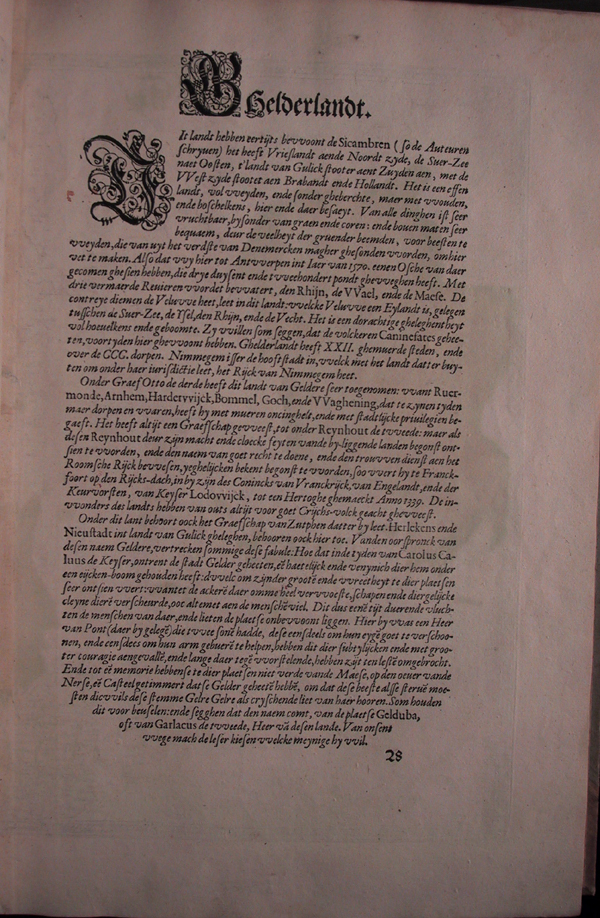 Ghelderlandt.
It landt hebben eertijts bevvoont de Sicambren (so de Auteuren
schryuen) het heeft Vrieslandt aende Noordt zyde, de Suer-Zee
naer Oosten, t'landt van Gulick stooter aent Zuyden aen, met de
VVest zyde stootet aen Brabandt ende Hollandt. Het is een effen
landt, vol vveyden, ende sonder gheberchte, maer met vvouden,
ende boschelkens, hier ende daer besaeyt. Van alle dinghen ist seer
vruchtbaer, bysonder van graen ende coren: ende bouen maten seer
bequaem, deur de veelheyt der gruender beemden, voor beesten te
vveyden, die van uyt het verdste van Denemercken magher ghesonden vvorden, om hier
vet te maken. Also dat vvy hier tot Antvverpen int Iaer van 1570. eenen Osche van daer
gecomen ghesien hebben, die drye duysent ende tvveehondert pondt ghevveghen heeft. Met
drie vermaerde Reuieren vvordet bevvatert, den Rhijn, de VVael, ende de Maese. De
contreye diemen de Veluvve heet, leet in dit landt: vvelcke Veluvve een Eylandt is, gelegen
tusschen de Suer-Zee, de Ysel, den Rhijn, ende de Vecht. Het is een dorachtige gheleghentheyt
vol heuuelkens ende geboomte. Zy vvillen som seggen, dat de volckeren Caninefates gehee-
ten, voortyden hier ghevvoont hebben. Ghelderlandt heeft XXII. ghemuerde steden, ende
over de CCC. dorpen. Nimmegem isser de hooftstadt in, vvelck met het landt datter buy-
ten om onder haer iurisdictie leet, het Rijck van Nimmegem heet.
Onder Graef Otto de derde heeft dit landt van Geldere seer toegenomen: vvant Ruer-
monde, Arnhem, Hardervvijck, Bommel, Goch, ende VVaghening, dat te zynen tyden
maer dorpen en vvaren, heeft hy met mueren oncinghele, ende met stadtlijcke priuilegien be-
gaeft. Het heeft altijt een Graefschap gevveest, tot onder Reynhout de tvveede: maer als
desen Reynhout deur zijn macht ende cloecke feyten vande by-liggende landen begonst ont-
sien te vvorden, ende den naem van goet recht te doene, ende den trouvven dienst aen het
Roomsche Rijck bevvesen, yeghelijcken bekent begonst te vvorden, soo vvert hy te Franck-
foort op den Rijcks-dach, in by zijn des Conincks van Vranckrijck, van Engelandt, ende der
Keurvorsten, van Keyser Lodovvijck, tot een Hertoghe ghemaeckt Anno 1339. De in-
vvonders des landts hebben van outs altijt voor goet Crijchs-volck geacht ghevveest.
Onder dit lant behoort oock het Graefschap van Zutphen datter by leet. Herlekens ende
Nieustadt int landt van Gulick gheleghen, behooren oock hier toe. Vanden oorspronck van
desen naem Geldere, vertrecken sommige dese fabule: Hoe dat inde tyden van Carolus Ca-
luus de Keyser, ontrent de stadt Gelder geheeten, eē haetelijck ende venynich dier hem onder
een eijcken-boom gehouden heeft: dvvelc om zijnder grootē ende vvreetheyt te dier plaetsen
seer ontsien vvert: vvantet de ackerē daer omme heel vervvoeste, schapen ende diergelijcke
cleyne dierē verscheurde, ooc altemet aen de menschē viel. Dit dus eenē tijt duerende vluch-
ten de menschen van daer, ende lieten de plaetse onbevvoont liggen. Hier by vvas een Heer
van Pont (daer by gelegē) die tvvee sonē hadde, dese eensdeels om hun eygē goet te verschoo-
nen, ende eensdeels om hun arm gebuerē te helpen, hebben dit dier subtylijcken ende met groo-
ter couragie aengevallē, ende lange daer tegē vvorstelende, hebben zijt ten lestē omgebrocht.
Ende tot eē memorie hebbense te dier plaetsen niet verde vande Maese, op den oeuer vande
Nerse, eē Casteel getimmert datse Gelder geheetē hebbē, om dat dese beeste alsse steruē moe-
sten dicvvils dese stemme Gelre Gelre als cryschende liet van haer hooren. Som houden
dit voor beuselen: ende segghen dat den naem comt, van de plaetse Gelduba,
oft van Garlacus de tvveede, Heer vā desen lande. Van onsent
vvege mach de leser kiesen vvelcke meynige hy vvil.
28